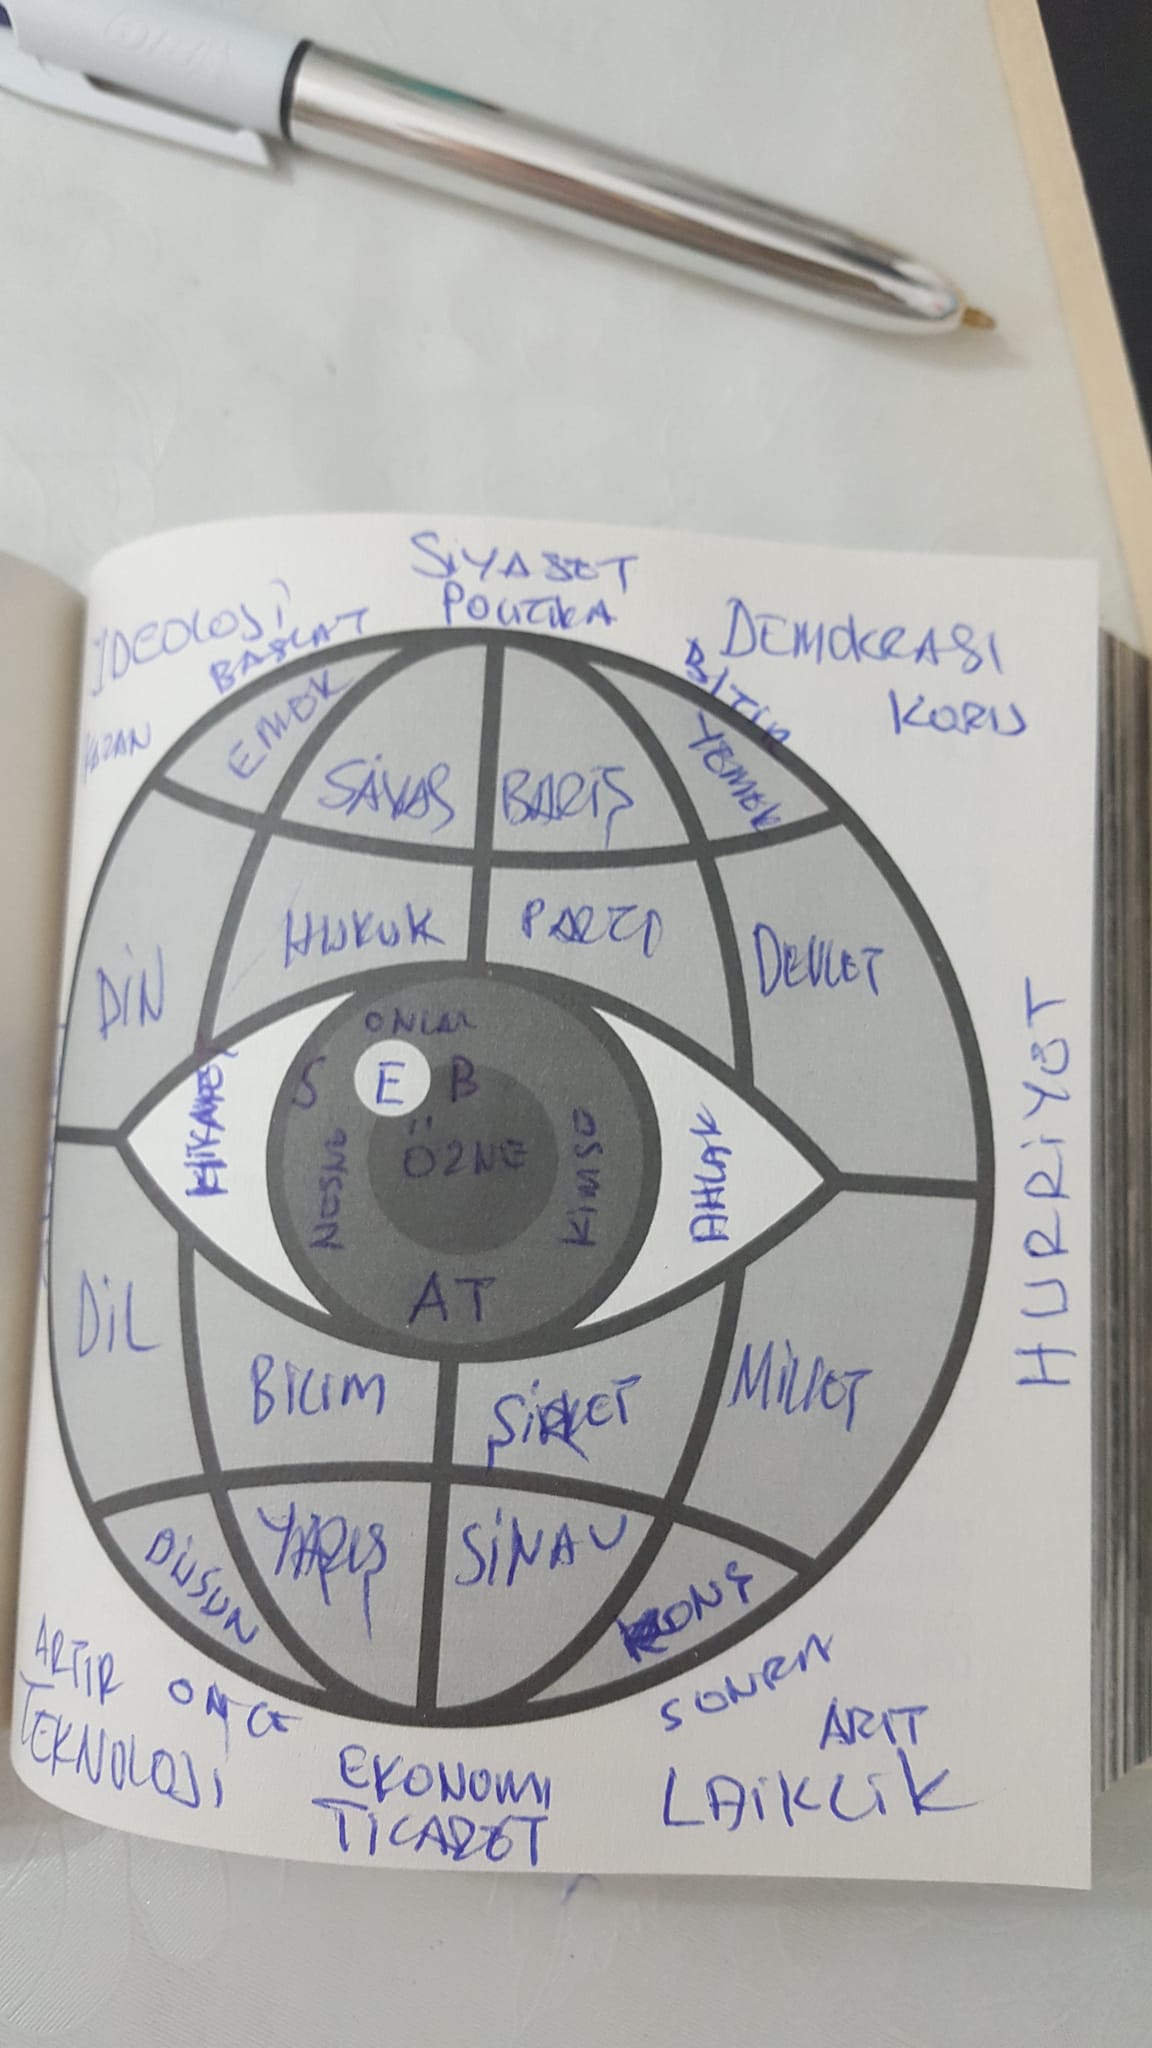 SİYASET
POLİTİKA
İDEOLOJİ
BAŞLAT
DEMOKRASİ
BİTİR
KAZAN
KORU
EMEK
YEMEK
SAVAŞ BARIŞ
HUKUK PARTİ
DİN
DEVLET
ONLAR
S E B
HİKAYE
NESNE
ÖZNE
KİMSE
AHLAK
HURRİYET
AT
DİL
BİLİM
ŞİRKET
MİLLET
YARIŞ
SINAV
DÜŞÜN
KONŞ
ARTIR
ÖNCE
SONRA
ARIT
TEKNOLOJİ
EKONOMİ
TİCARET
LAİKLİK